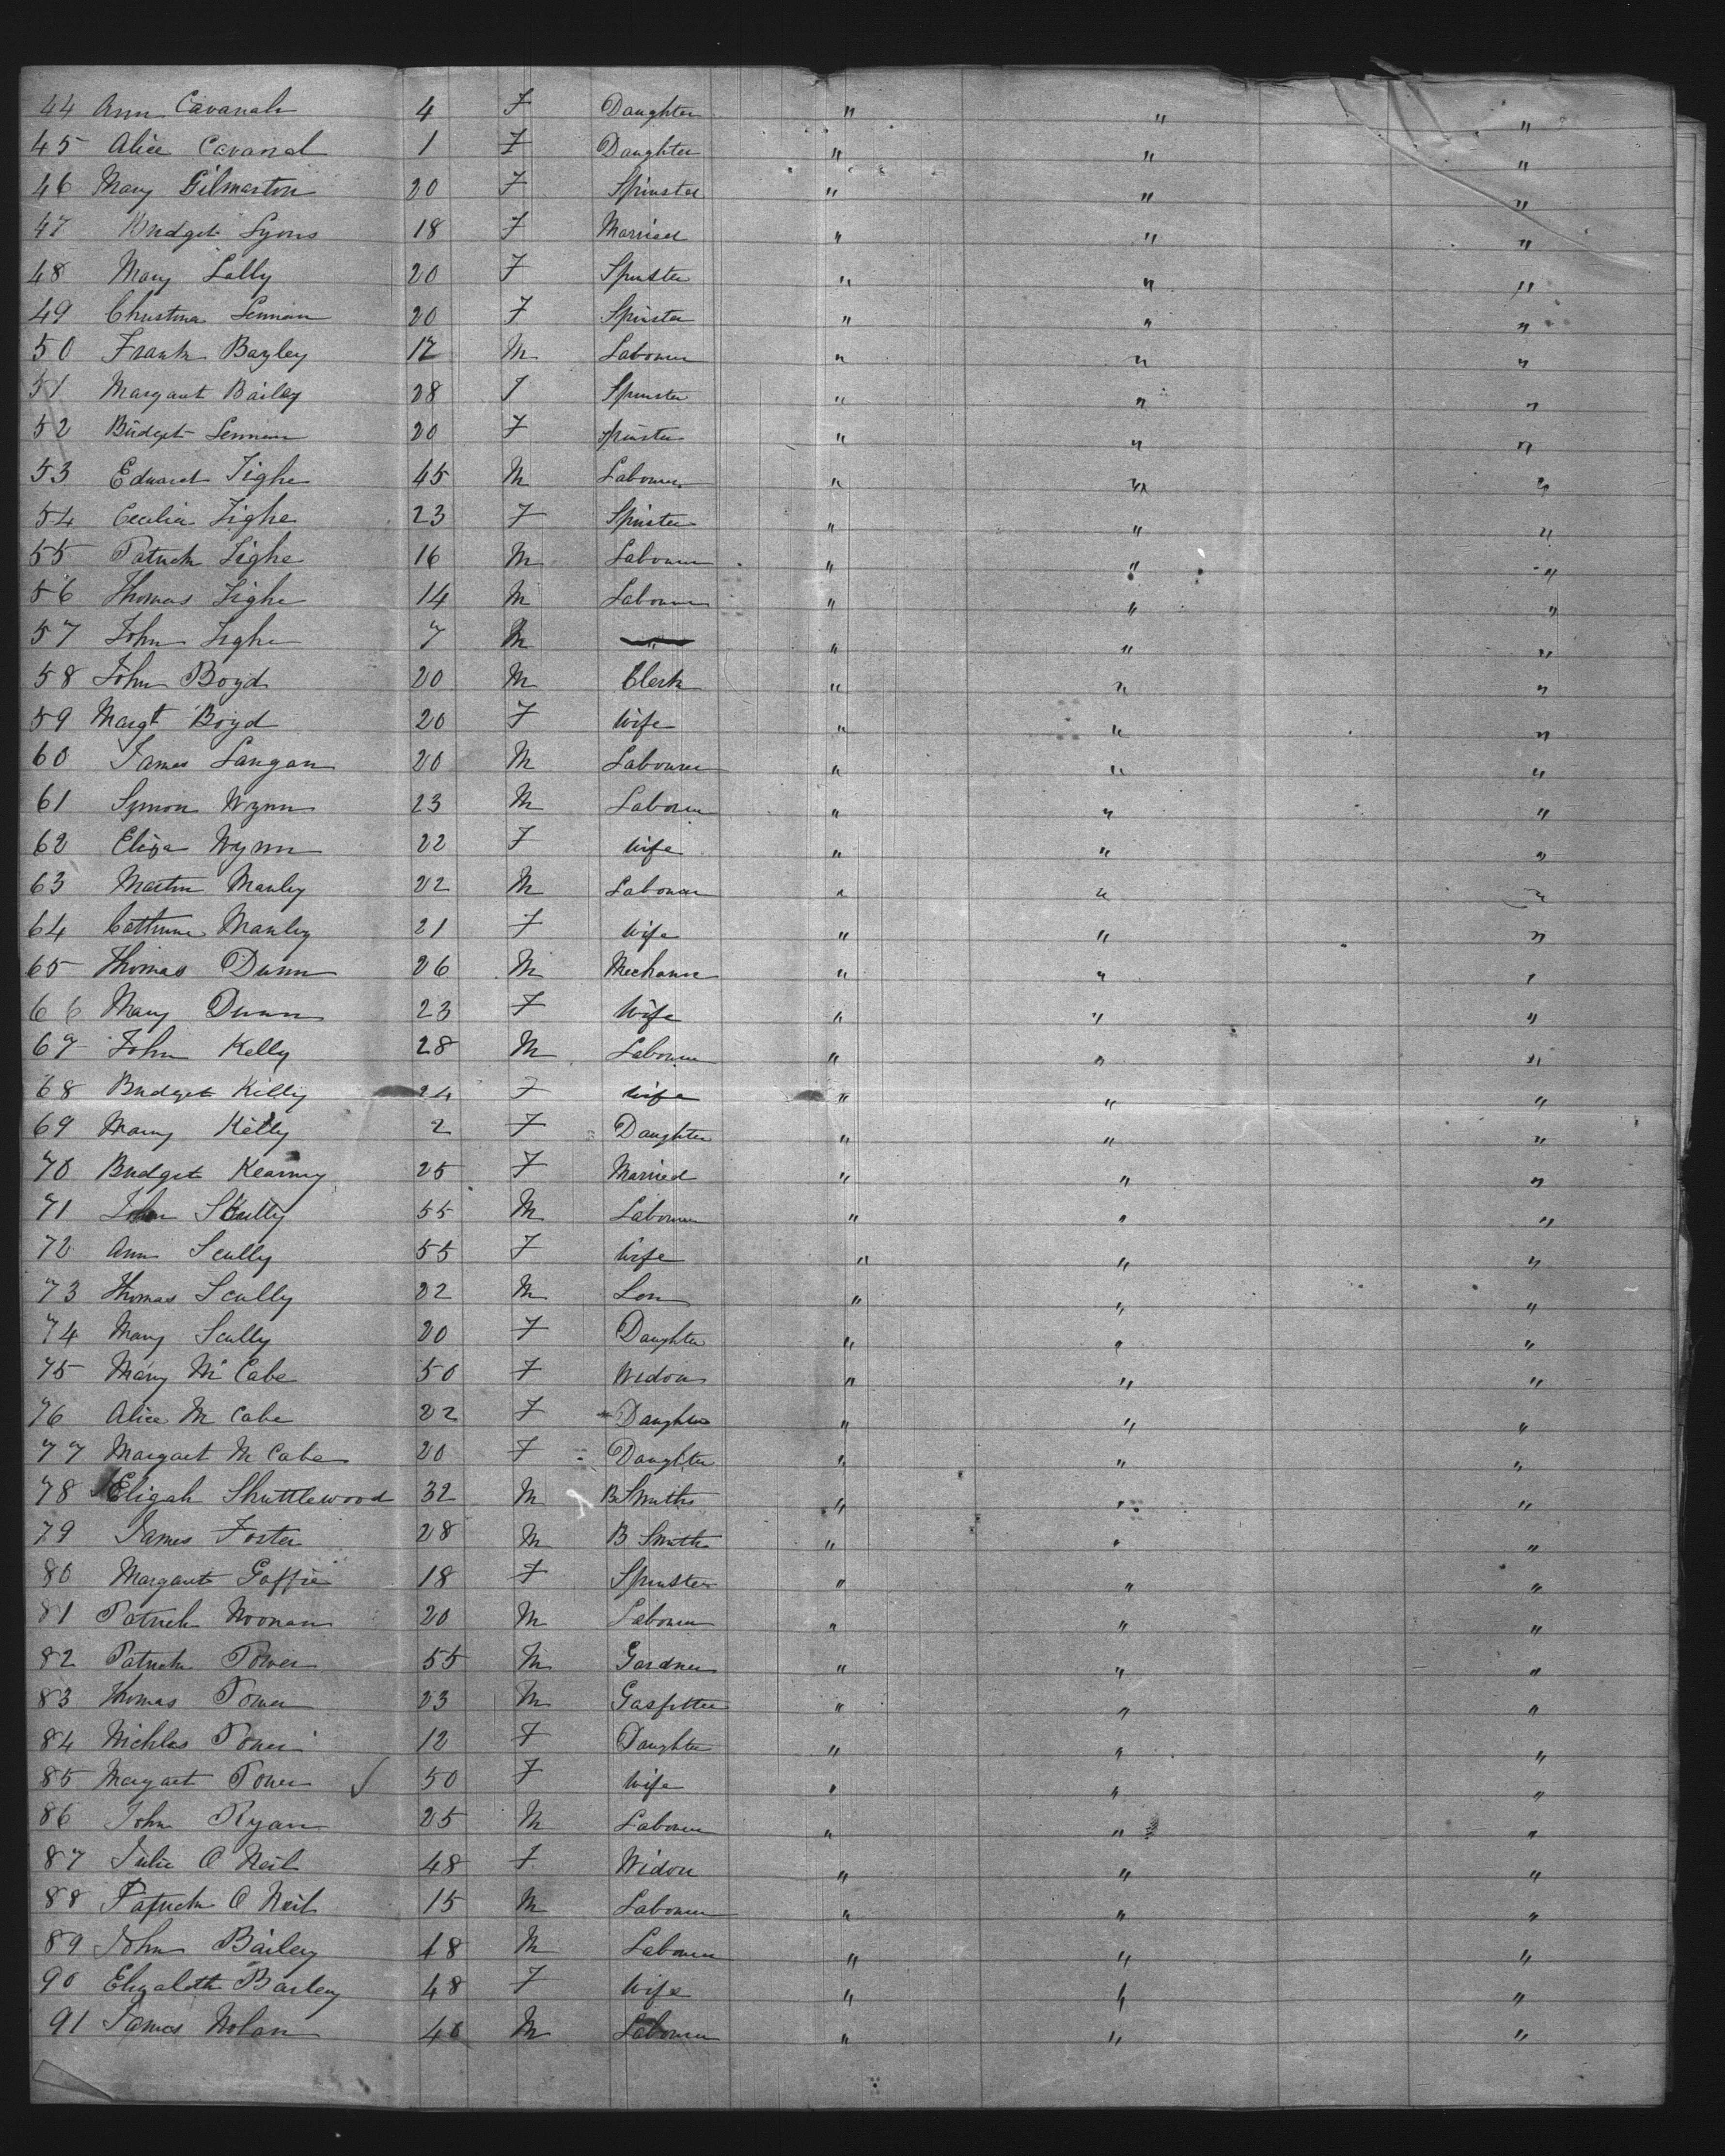 44 Ann Cavanah 4 F Daughter " " "
45 Alice Cavanah 1 F Daughter " " "
46 Mary Gilmarton 20 F Spinster " " "
47 Bridget Lyons 18 F Married " " "
48 Mary Lally 20 F Spinster " " "
49 Christina Lennan 20 F Spinster " " "
50 Frank Bayley 17 M Labourer " " "
51 Margaret Bailey 28 F Spinster " " "
52 Bridget Lennan 20 F Spinster " " "
53 Edward Tighe 45 M Labourer " " "
54 Cecilia Tighe 23 F Spinster " " "
55 Patrick Tighe 16 M Labourer " " "
56 Thomas Tighe 14 M Labourer " " "
57 John Tighe 7 M " " "
58 John Boyd 20 M Clerk " " "
59 Margt Boyd 20 F Wife " " "
60 James Langan 20 M Labourer " " "
61 Symon Wynn 23 M Labourer " " "
62 Eliza Wynn 22 F Wife " " "
63 Martin Manley 22 M Labourer " " "
64 Catherine Manley 21 F Wife " " "
65 Thomas Dunn 26 M Mechanic " " "
66 Mary Dunn 23 F Wife " " "
67 John Kelly 28 M Labourer " " "
68 Bridget Kelly 24 F Wife " " "
69 Mary Kelly 2 F Daughter " " "
70 Bridget Kearney 25 F Married " " "
71 John Scully 55 M Labourer " " "
72 Ann Scully 55 F Wife " " "
73 Thomas Scully 22 M Son " " "
74 Mary Scully 20 F Daughter " " "
75 Mary McCabe 50 F Widow " " "
76 Alice McCabe 22 F Daughter " " "
77 Margaret McCabe 20 F Daughter " " "
78 Eligah Shuttlewood 32 M B Smith " " "
79 James Foster 28 M B Smith " " "
80 Margaret Goffie 18 F Spinster " " "
81 Patrick Noonan 20 M Labourer " " "
82 Patrick Power 55 M Gardner " " "
83 Thomas Power 23 M Gasfitter " " "
84 Nichlas Power 12 F Daughter " " "
85 Margaret Power 50 F Wife " " "
86 John Ryan 25 M Labourer " " "
87 Julie O Neil 48 F Widow " " "
88 Patrick O Neil 15 M Labourer " " "
89 John Bailey 48 M Labourer " " "
90 Elizabeth Bailey 48 F Wife " " "
91 James Nolan M Labourer " " "